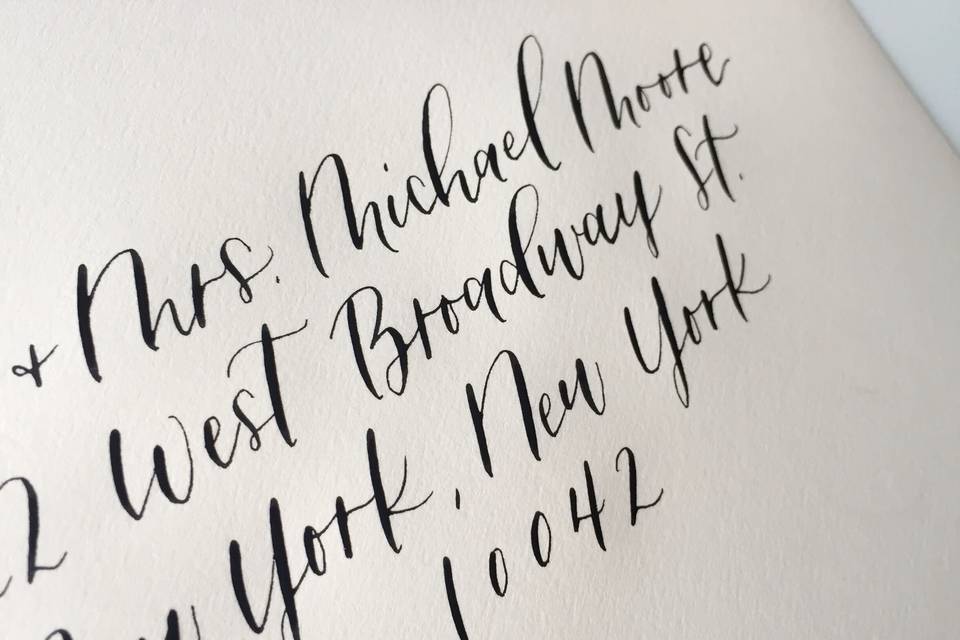 + Mrs. Michael Moore
2 West Broadway St.
York, New York
10042